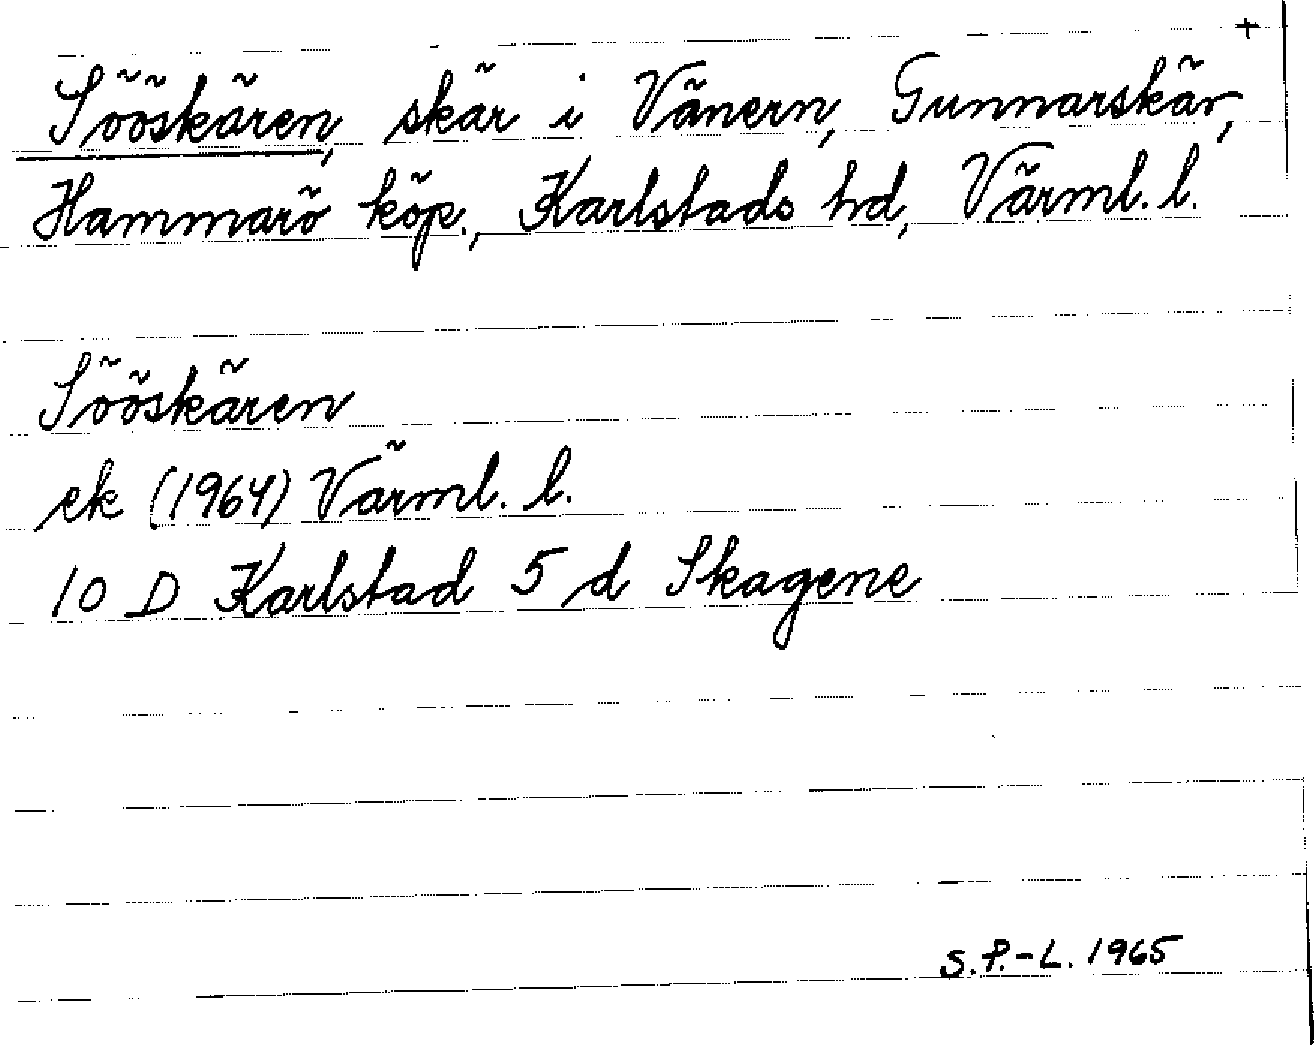 +
Sööskären, skär i Vänern, Gunnarskär,
Hammarö köp., Karlstads hd, Värml. l.
Sööskären
ek (1964) Värml. l.
10 D Karlstad 5 d Skagene
S.P.-L. 1965